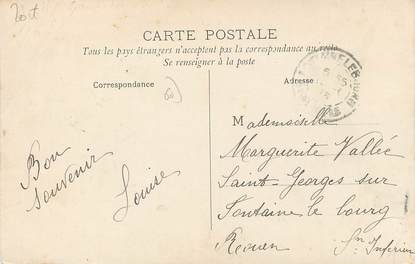 CARTE POSTALE
Tous les pays étrangers n'acceptent pas la correspondance au recto
Se renseigner à la poste
Correspondance
Adresse
Bon
souvenir
Louise
Mademoiselle
Marguerite Vallée
Saint-Georges sur
Fontaine le bourg
Rouen
Sne Inférieu